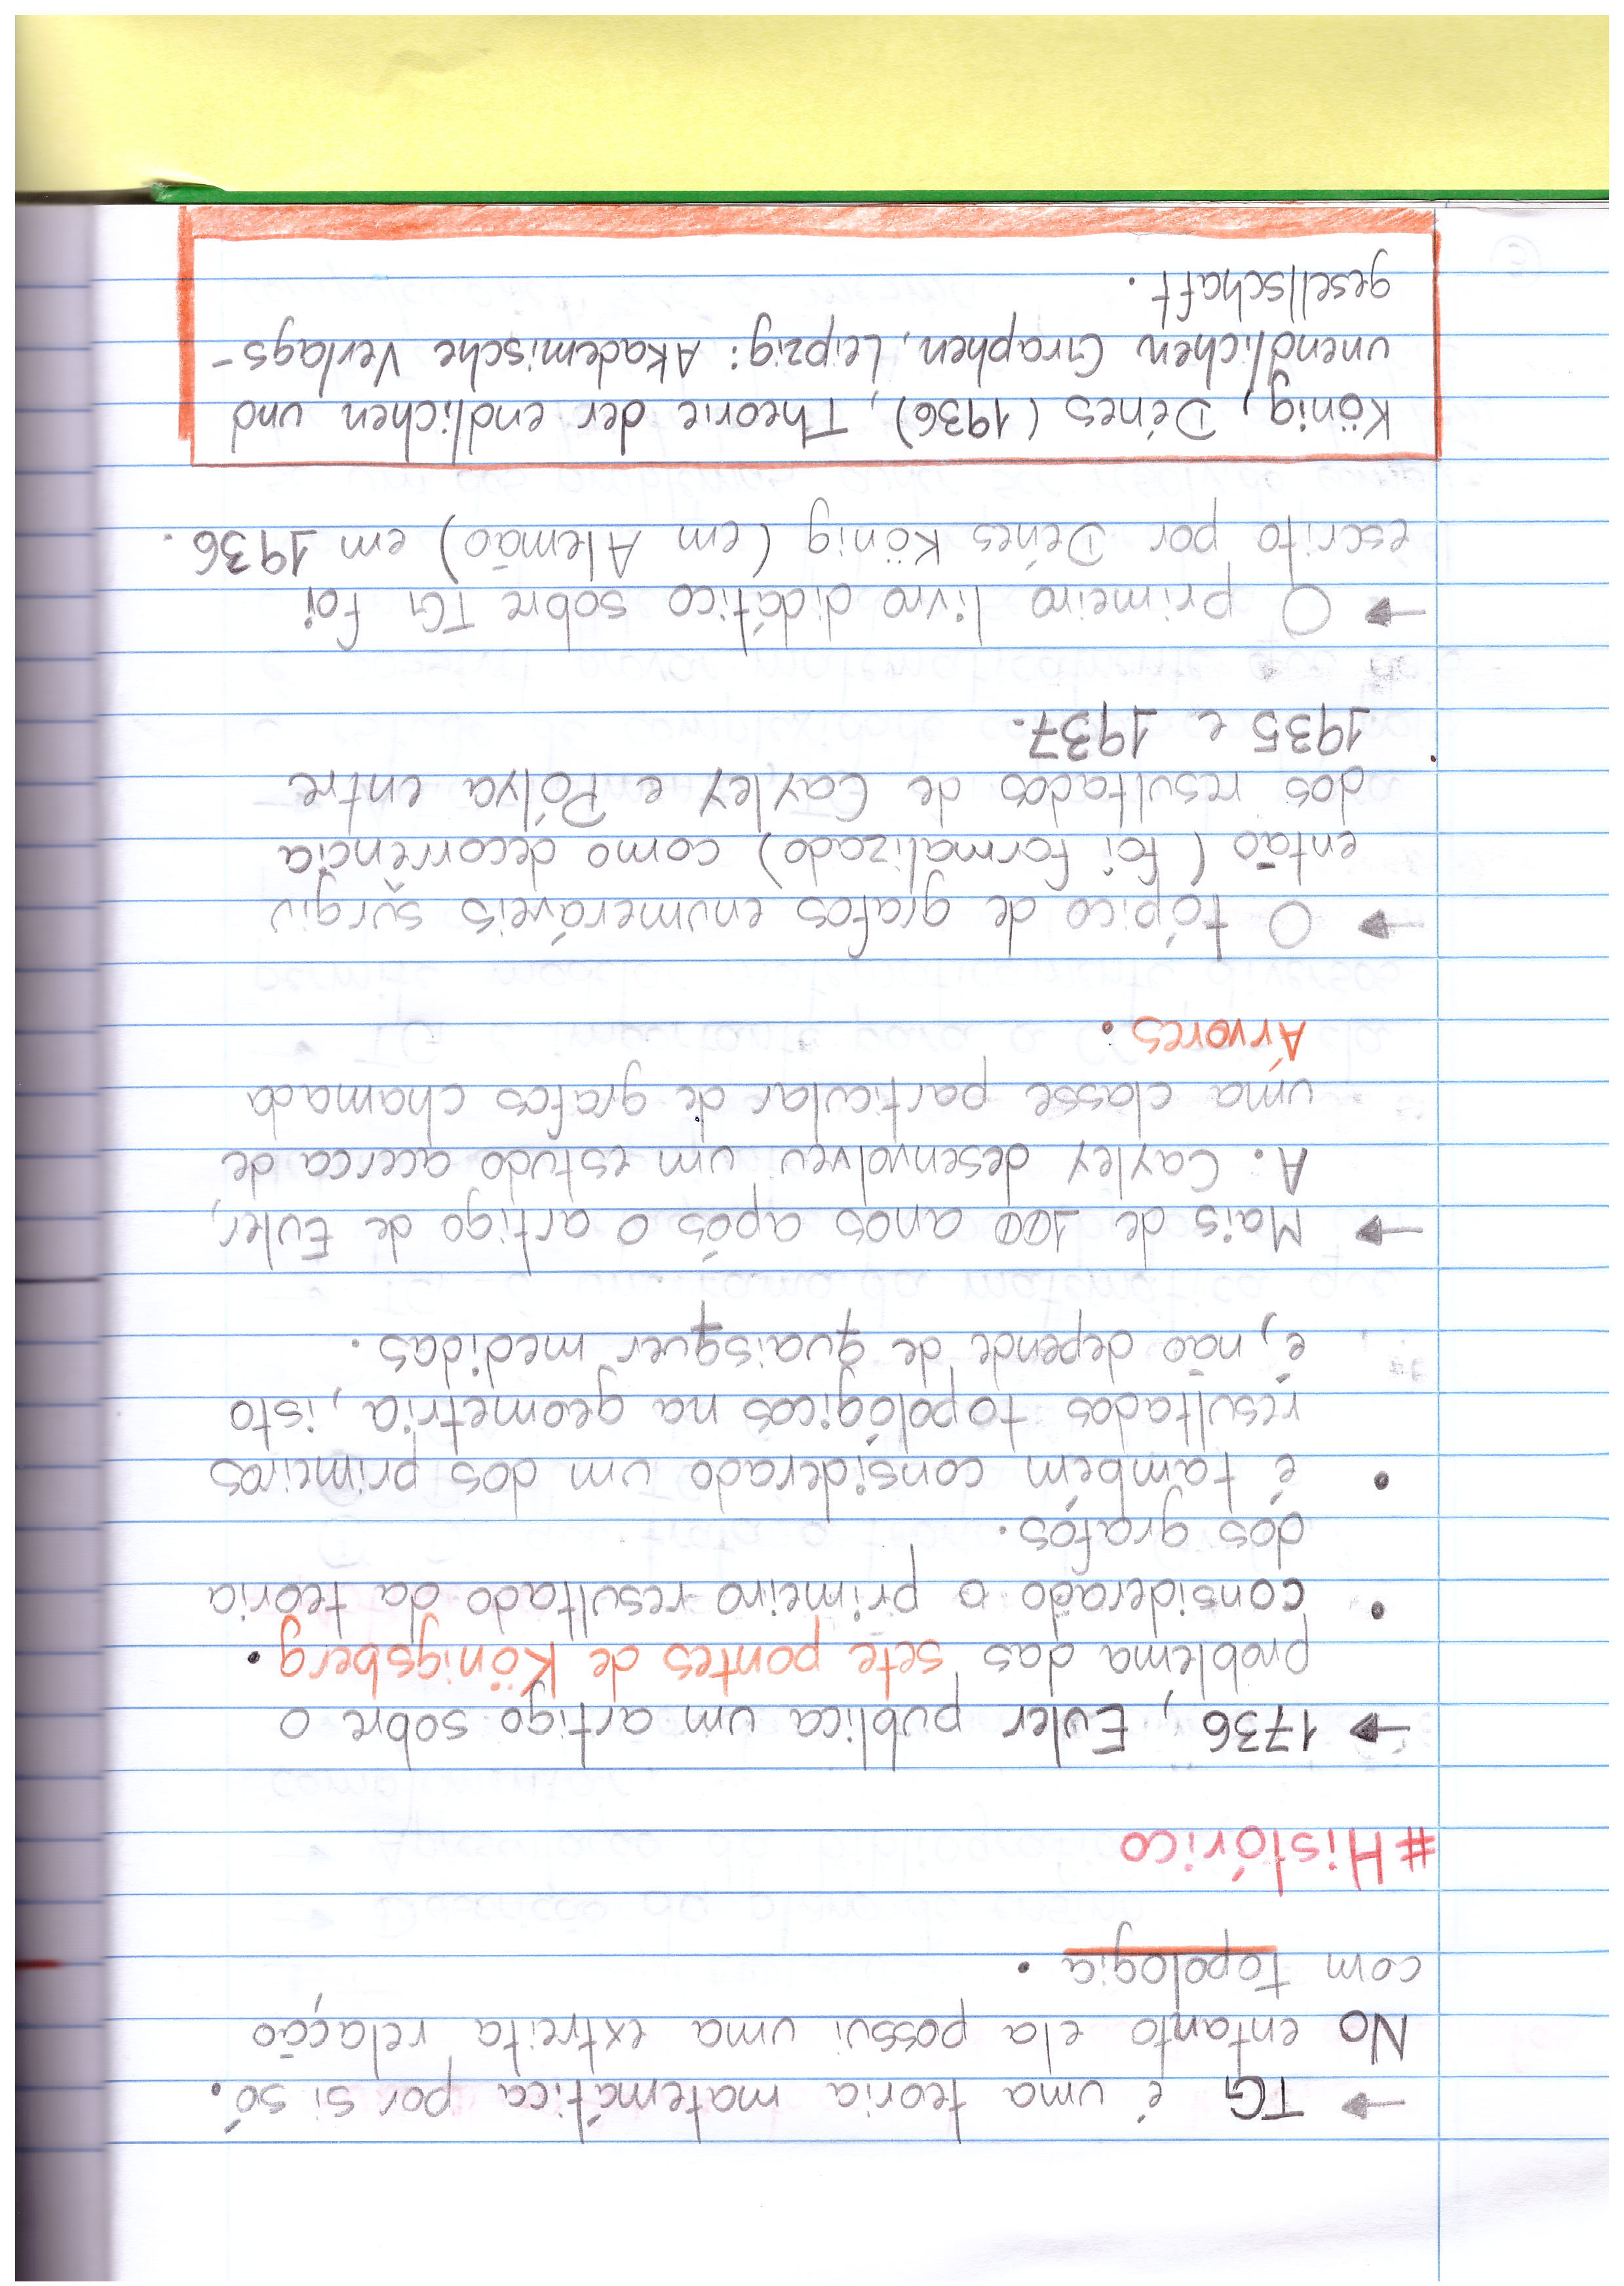 → TG é uma teoria matemática por si só.
No entanto ela possui uma extreita relação
com topologia.
#Histórico
→ 1736, Euler publica um artigo sobre o
problema das sete pontes de Königsberg.
• considerado o primeiro resultado da teoria
dos grafos.
• é também considerado um dos primeiros
resultados topológicos na geometria, isto
é, não depende de quaisquer medidas.
→ Mais de 100 anos após o artigo de Euler,
A. Cayley desenvolveu um estudo acerca de
uma classe particular de grafos chamada
Árvores.
→ O tópico de grafos enumeráveis surgiu
então (foi formalizado) como decorrência
dos resultados de Cayley e Pólya entre
1935 e 1937.
→ O primeiro livro didático sobre TG foi
escrito por Dénes König (em Alemão) em 1936.
König, Dénes (1936), Theorie der endlichen und
unendlichen Graphen, Leipzig: Akademische Verlags-
gesellschaft.